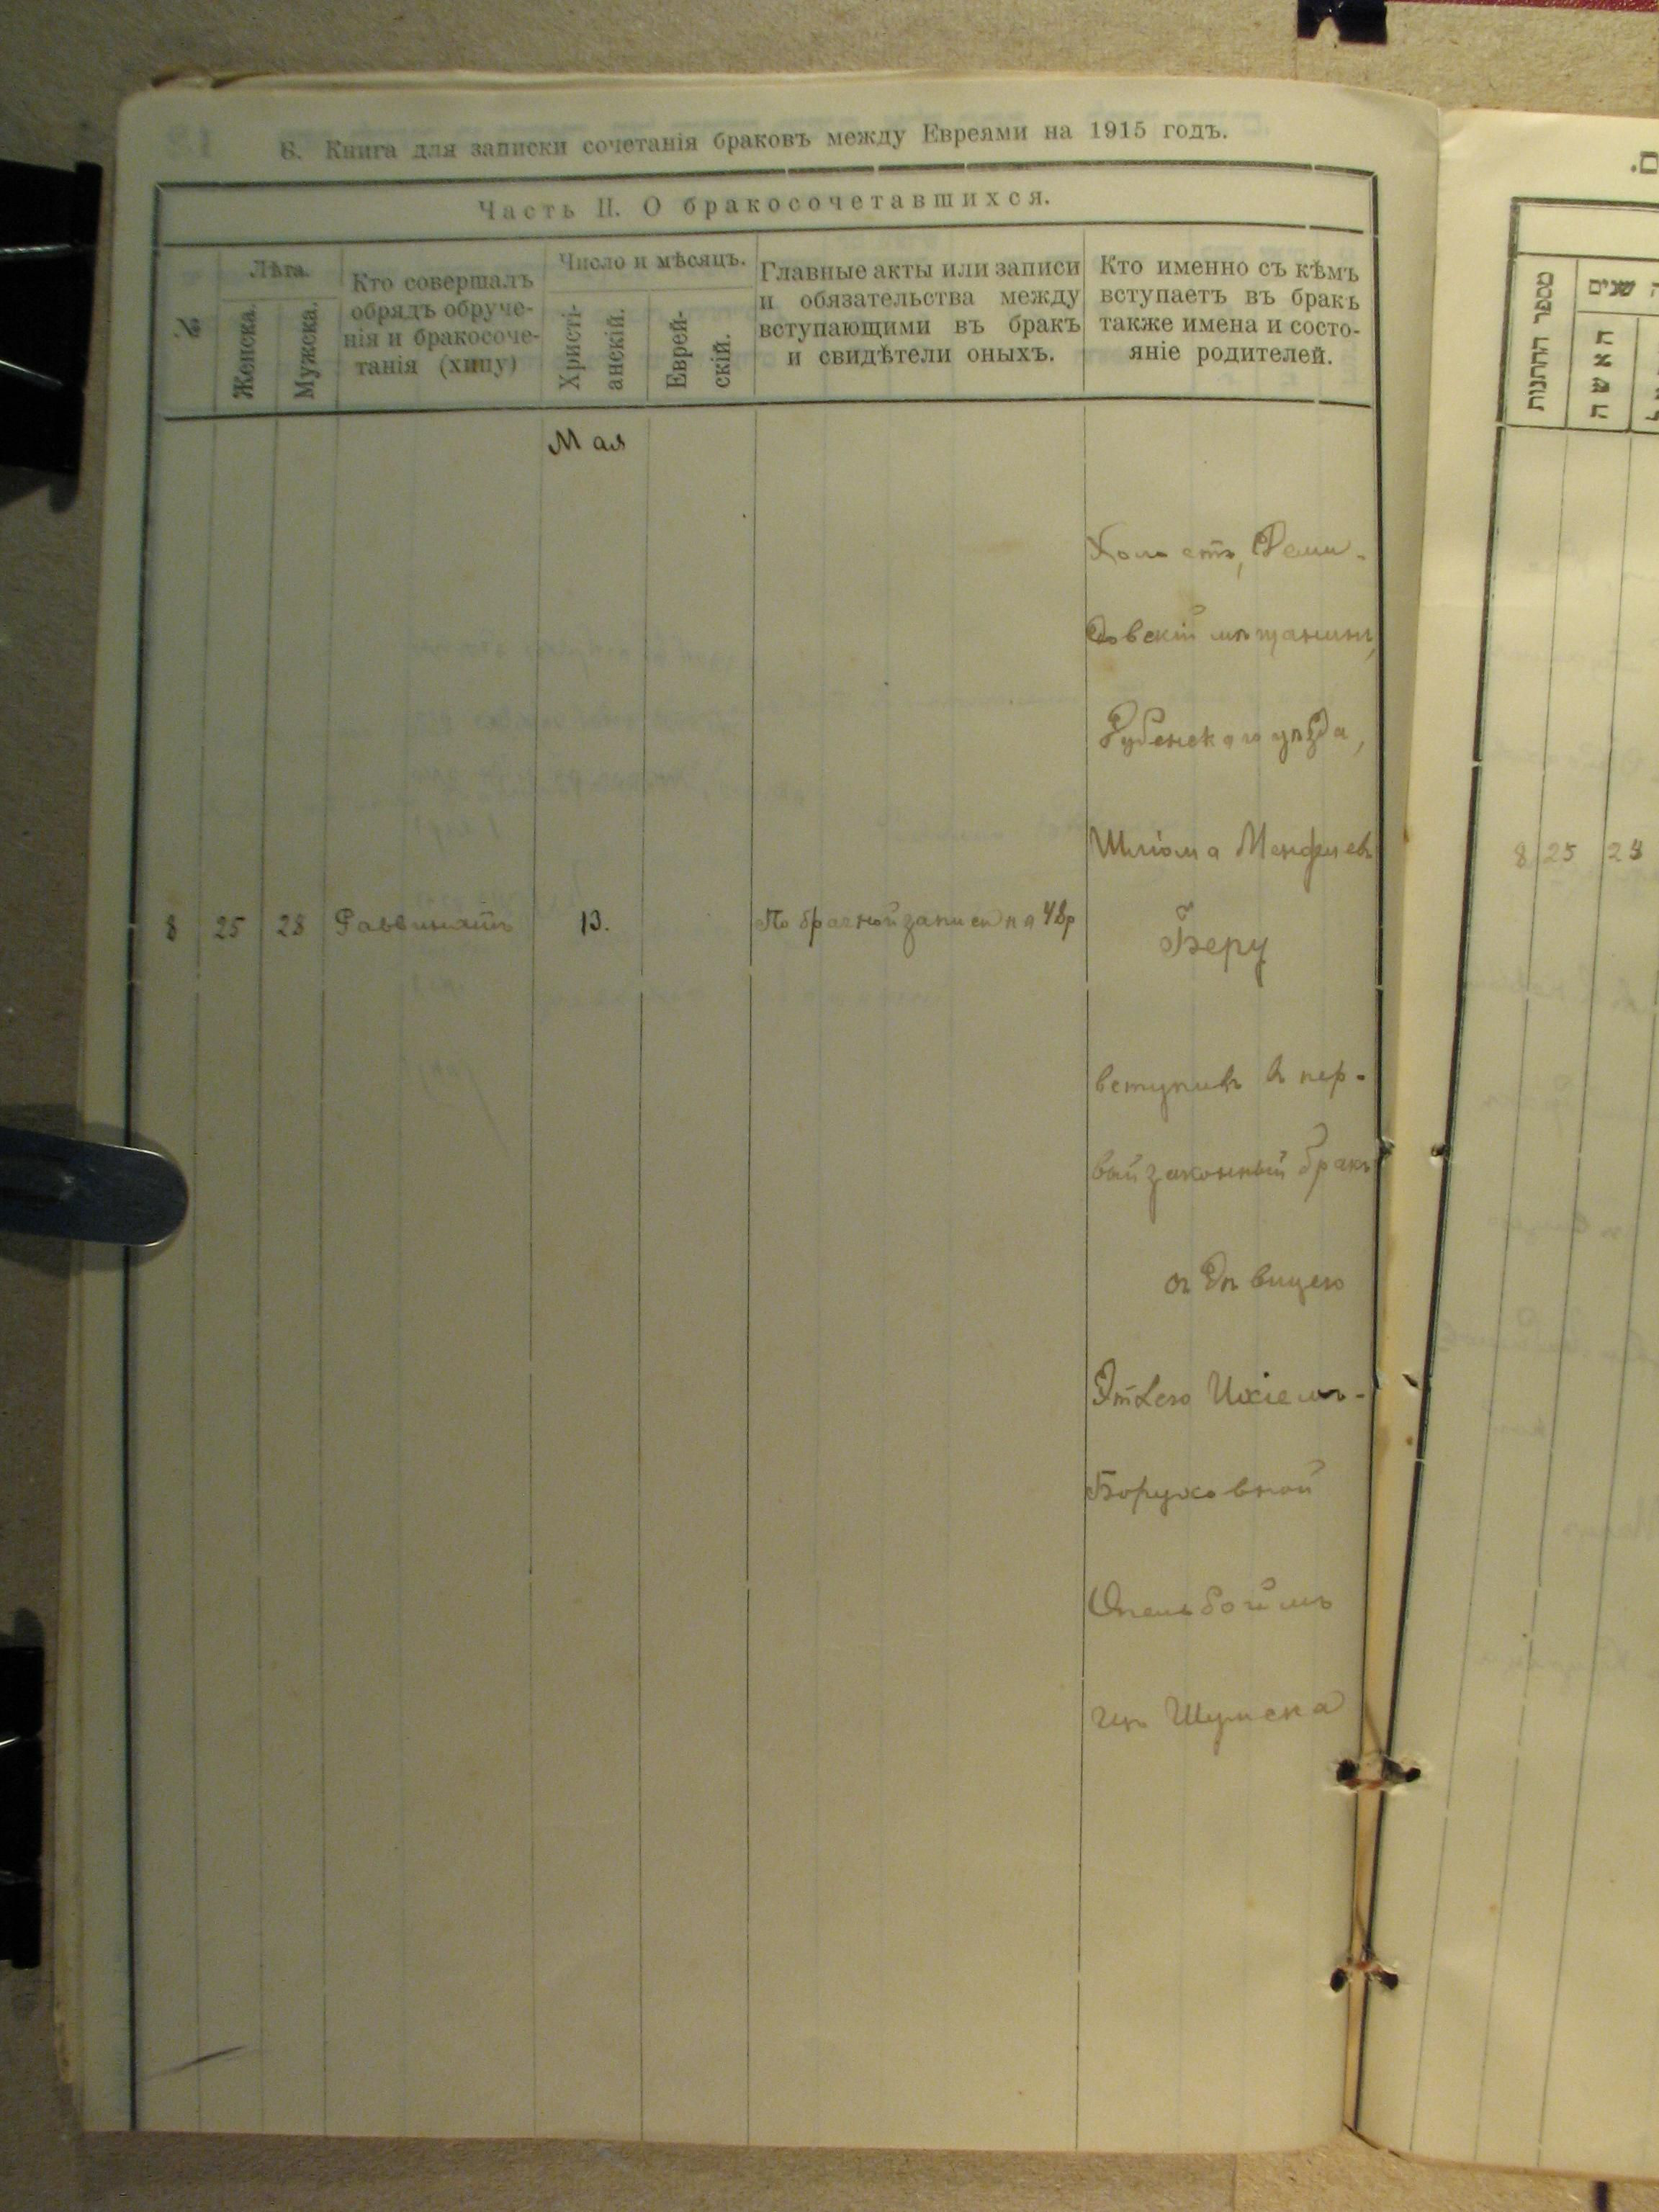 В. Книга для записки сочетанія браковъ между Евреями на 1915 годъ.
Часть II. О бракосочетавшихся.
№
Лѣта.
Женска.
Мужска.
Кто совершалъ
обрядъ обруче-
нія и бракосоче-
танія (хипу)
Число и мѣсяцъ.
Христі-
анскій.
Еврей-
скій.
Главные акты или записи
и обязательства между
вступающими въ бракъ
и свидѣтели оныхъ.
Кто именно съ кѣмъ
вступаетъ въ бракъ
также имена и состо-
яніе родителей.
Мая
8 25 28 Раввинатъ 13. По брачной записи на 48р
Холостъ, Деми-
довскій мѣщанинъ,
Дубенскаго уѣзда,
Шліома
Беру
вступилъ въ пер-
вый законный бракъ
съ дѣвицею
Боруховной
изъ Шумска
מספר החתונות
שנים
האשה
8 25 28